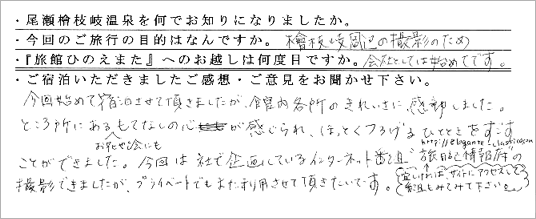 ・尾瀬檜枝岐温泉を何でお知りになりましたか。
・今回のご旅行の目的はなんですか。 檜枝岐周辺の撮影のため
・『旅館ひのえまた』へのお越しは何度目ですか。 会社としては始めてです。
・ご宿泊いただきましたご感想・ご意見をお聞かせ下さい。
今回始めて宿泊させて頂きましたが、館内各所のきれいさに、感動しました。
ところ所にあるもてなしの心が感じられ、ほっとくつろげるひとときをすごす
お花や絵にも
ことができました。今回は社で企画しているインターネット番組"旅日記情報府"の
撮影できましたが、プライベートでもまた利用させて頂きたいです。
宜しければサイトにアクセスして
番組をみてみて下さい。